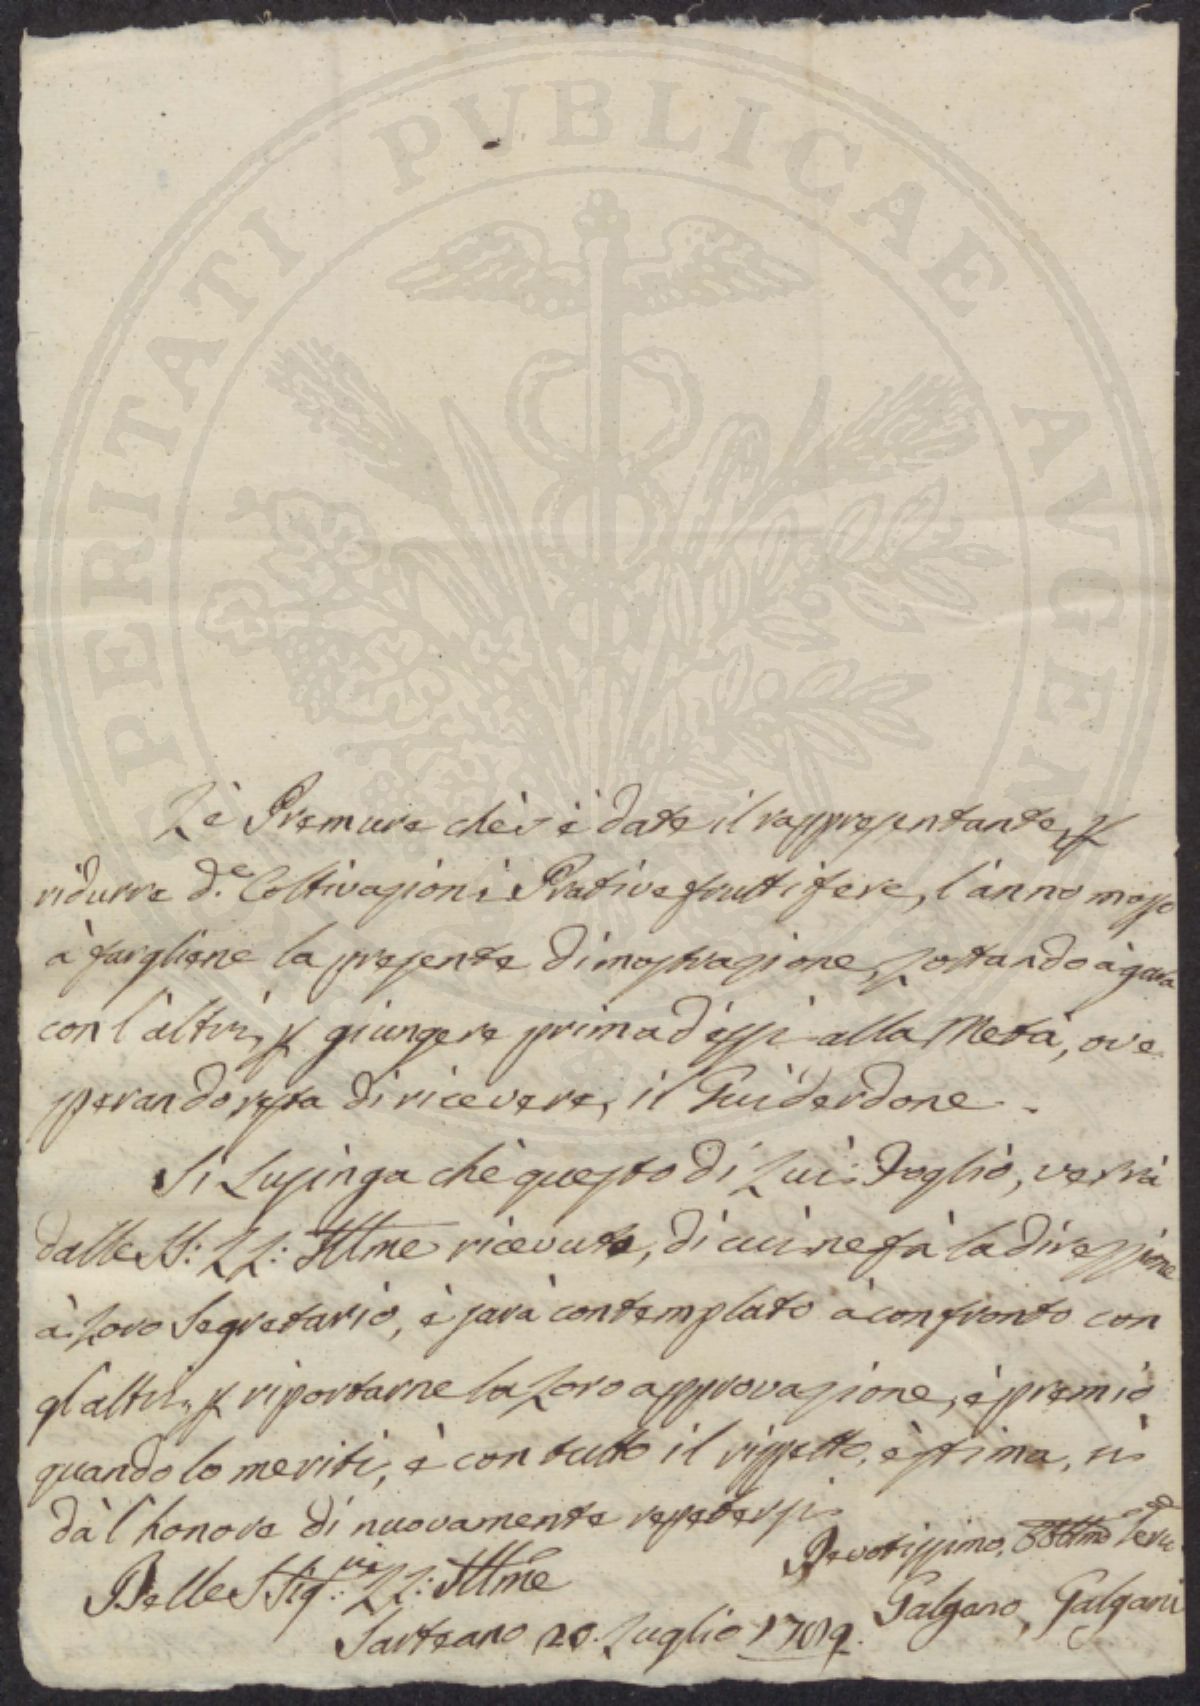 PROSPERITATI PVBLICAE AVGENDAE
Lè Premure chè s'è date il rappresentante, p
ridurre d.e Coltivazioni Prative fruttifere, l'anno mosso
à fargliene la presente dimostrazione, portando à gara
con l'altri, p giungere prima d'essi alla Metà, ove
sperando resta di ricevere, il Guiderdone.
Si Lusinga chè questo di Lui Foglio, verrà
dalle SS: LL: Illme ricevuto, di cui ne fà la direzzione
à Loro Segretario, è sarà contemplato à confronto con
gl'altri, p riportarne la Loro approvazione, è premio
quando lo meriti, è con tutto il rispetto, è stima, si
dà l'honore di nuovamente repetersi
Delle SSig:rie LL: Illme
Devotissimo, Obblmo Serv.e
Galgano Galgani
Sarteano 20. Luglio 1789.